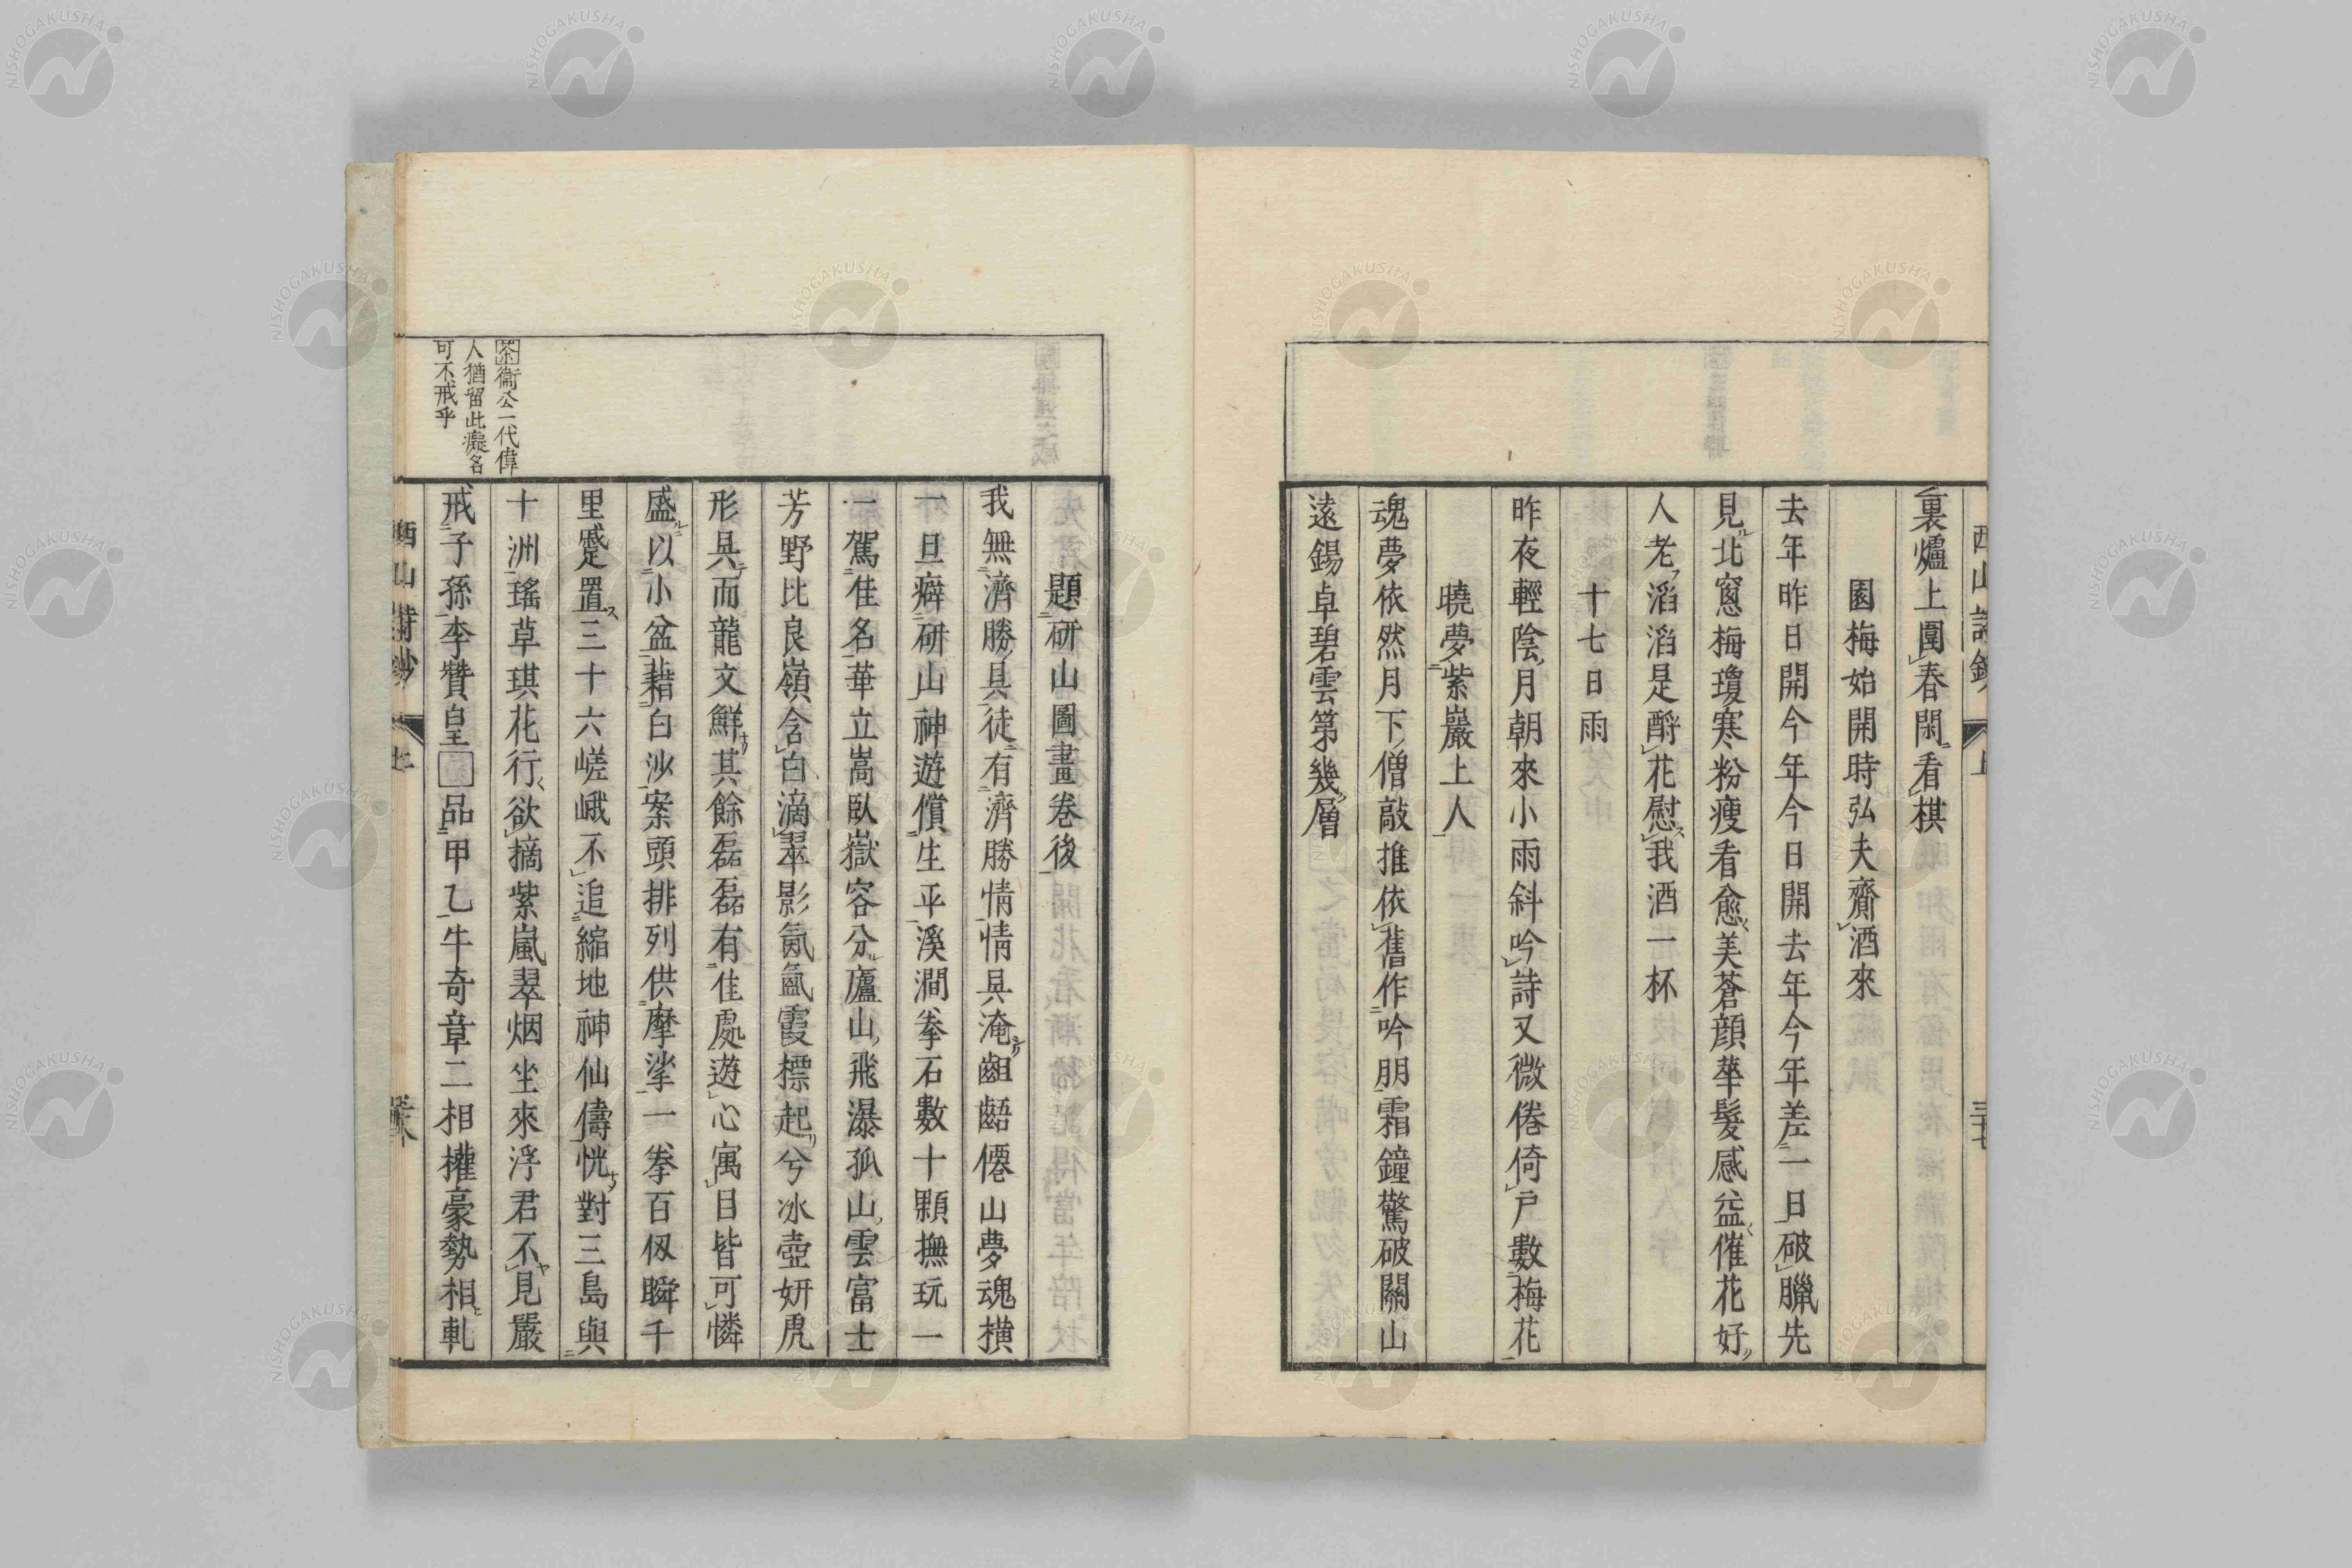 裏爐上圍春閑看棋
園梅始開時弘夫齎酒來
去年昨日開今年今日開去年今年差一日破臘先
見北窓梅瓊寒粉瘦看愈美蒼顔華髮感益催花好
人老滔滔是酹花慰我酒一杯
十七日雨
昨夜輕陰月朝來小雨斜吟詩又微倦倚戸數梅花
曉夢紫巖上人
魂夢依然月下僧敲推依舊作吟朋霜鐘驚破關山
遠錫卓碧雲第幾層
題研山圖畫卷後
我無濟勝具徒有濟勝情情具淹齟齬僊山夢魂横
一旦癖研山神遊償生平溪澗拳石數十顆撫玩一
一駕佳名華立嵩臥嶽容分廬山飛瀑孤山雲富士
芳野比良嶺含白滴翠影氤氳霞標起兮冰壺妍凭
形具而龍文鮮其餘磊磊有佳處遊心寓目皆可憐
盛以小盆藉白沙案頭排列供摩挲一拳百仭瞬千
里蹙置三十六嵯峨不追縮地神仙儔恍對三島與
十洲瑤草琪花行欲摘紫嵐翠烟坐來浮君不見嚴
戒子孫李贊皇品甲乙牛奇章二相權豪勢相軋
茶衞公一代偉
人猶留此癡名
可不戒乎
西山詩鈔
上